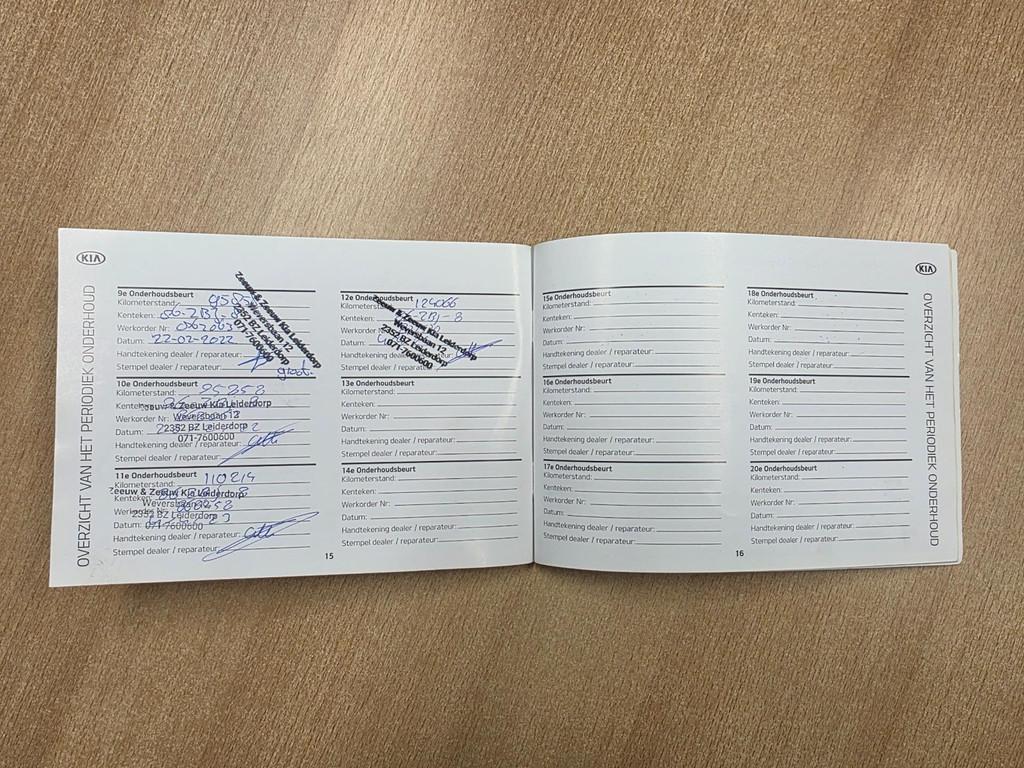 KIA
OVERZICHT VAN HET PERIODIEK ONDERHOUD
9e Onderhoudsbeurt
Kilometerstand:
Kenteken:
Werkorder Nr:
Datum: 22-02-2022
Handtekening dealer / reparateur:
Stempel dealer / reparateur: groot.
Zeeuw & Zeeuw Kia Leiderdorp
Weversbaan 12
2352 BZ Leiderdorp
071-7600600
10e Onderhoudsbeurt
Kilometerstand: 95258
Kenteken:
Werkorder Nr:
Datum:
Handtekening dealer / reparateur:
Stempel dealer / reparateur:
Zeeuw & Zeeuw Kia Leiderdorp
Weversbaan 12
2352 BZ Leiderdorp
071-7600600
11e Onderhoudsbeurt
Kilometerstand: 110214
Kenteken:
Werkorder Nr:
Datum:
Handtekening dealer / reparateur:
Stempel dealer / reparateur:
Zeeuw & Zeeuw Kia Leiderdorp
Weversbaan 12
2352 BZ Leiderdorp
071-7600600
12e Onderhoudsbeurt
124066
Kenteken:
Datum:
Handtekening dealer / reparateur:
Stempel dealer / reparateur:
Zeeuw & Zeeuw Kia Leiderdorp
Weversbaan 12
2352 BZ Leiderdorp
071-7600600
13e Onderhoudsbeurt
Kilometerstand:
Kenteken:
Werkorder Nr:
Datum:
Handtekening dealer / reparateur:
Stempel dealer / reparateur:
14e Onderhoudsbeurt
Kilometerstand:
Kenteken:
Werkorder Nr:
Datum:
Handtekening dealer / reparateur:
Stempel dealer / reparateur:
15
15e Onderhoudsbeurt
Kilometerstand:
Kenteken:
Werkorder Nr:
Datum:
Handtekening dealer / reparateur:
Stempel dealer / reparateur:
16e Onderhoudsbeurt
Kilometerstand:
Kenteken:
Werkorder Nr:
Datum:
Handtekening dealer / reparateur:
Stempel dealer / reparateur:
17e Onderhoudsbeurt
Kilometerstand:
Kenteken:
Werkorder Nr:
Datum:
Handtekening dealer / reparateur:
Stempel dealer / reparateur:
18e Onderhoudsbeurt
Kilometerstand:
Kenteken:
Werkorder Nr:
Datum:
Handtekening dealer / reparateur:
Stempel dealer / reparateur:
19e Onderhoudsbeurt
Kilometerstand:
Kenteken:
Werkorder Nr:
Datum:
Handtekening dealer / reparateur:
Stempel dealer / reparateur:
20e Onderhoudsbeurt
Kilometerstand:
Kenteken:
Werkorder Nr:
Datum:
Handtekening dealer / reparateur:
Stempel dealer / reparateur:
16
KIA
OVERZICHT VAN HET PERIODIEK ONDERHOUD